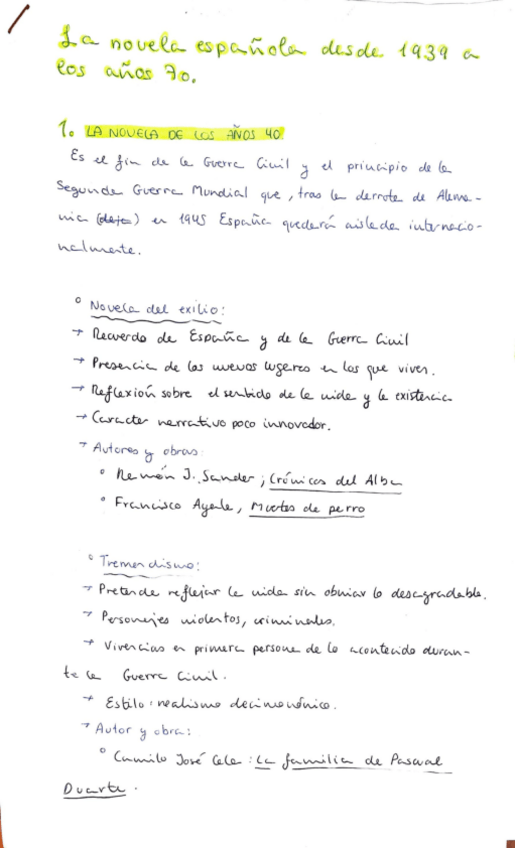 La novela española desde 1939 a
los años 70.
1. LA NOVELA DE LOS AÑOS 40.
Es el fin de la Guerra Civil y el principio de la
Segunda Guerra Mundial que, tras la derrota de Alema-
nia (deja) en 1945 España quedará aislada internacio-
nalmente.
° Novela del exilio:
→ Recuerdo de España y de la Guerra Civil
→ Presencia de los nuevos lugares en los que viven.
→ Reflexión sobre el sentido de la vida y la existencia
→ Caracter narrativo poco innovador.
→ Autores y obras:
° Ramón J. Sender; Crónicas del Alba
° Francisco Ayala, Muertes de perro
° Tremendismo:
→ Pretende reflejar la vida sin obviar lo desagradable.
→ Personajes violentos, criminales.
→ Vivencias en primera persona de lo acontecido duran-
te la Guerra Civil.
→ Estilo: realismo decimonónico.
→ Autor y obra:
° Camilo José Cela: La familia de Pascual
Duarte.